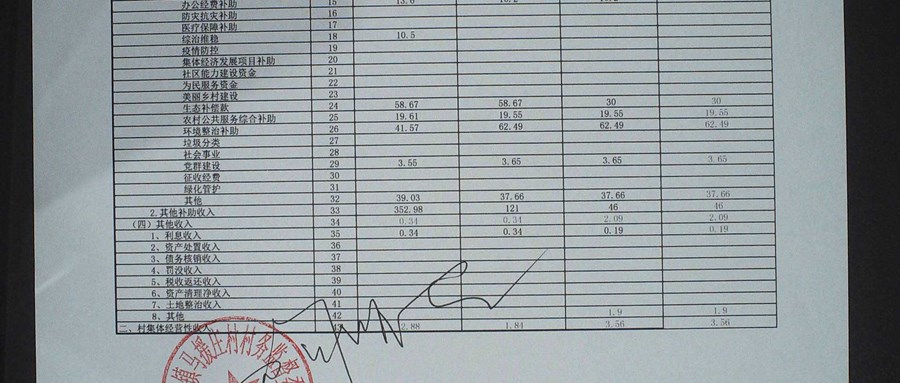 办公经费补助 15 13.6
防灾抗灾补助 16
医疗保障补助 17
综治维稳 18 10.5
疫情防控 19
集体经济发展项目补助 20
社区能力建设资金 21
为民服务资金 22
美丽乡村建设 23
生态补偿款 24 58.67 58.67 30 30
农村公共服务综合补助 25 19.61 19.55 19.55 19.55
环境整治补助 26 41.57 62.49 62.49 62.49
垃圾分类 27
社会事业 28
党群建设 29 3.55 3.65 3.65 3.65
征收经费 30
绿化管护 31
其他 32 39.03 37.66 37.66 37.66
2.其他补助收入 33 352.98 121 46 46
(四)其他收入 34 0.34 0.34 2.09 2.09
1、利息收入 35 0.34 0.34 0.19 0.19
2、资产处置收入 36
3、债务核销收入 37
4、罚没收入 38
5、税收返还收入 39
6、资产清理净收入 40
7、土地整治收入 41
8、其他 42 1.9 1.9
二、村集体经营性收入 43 2.88 1.84 3.56 3.56
镇马援庄村村务监督委